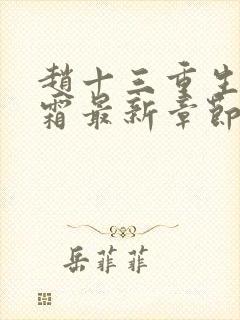 趙十三重生
霜最新章節
岳菲菲